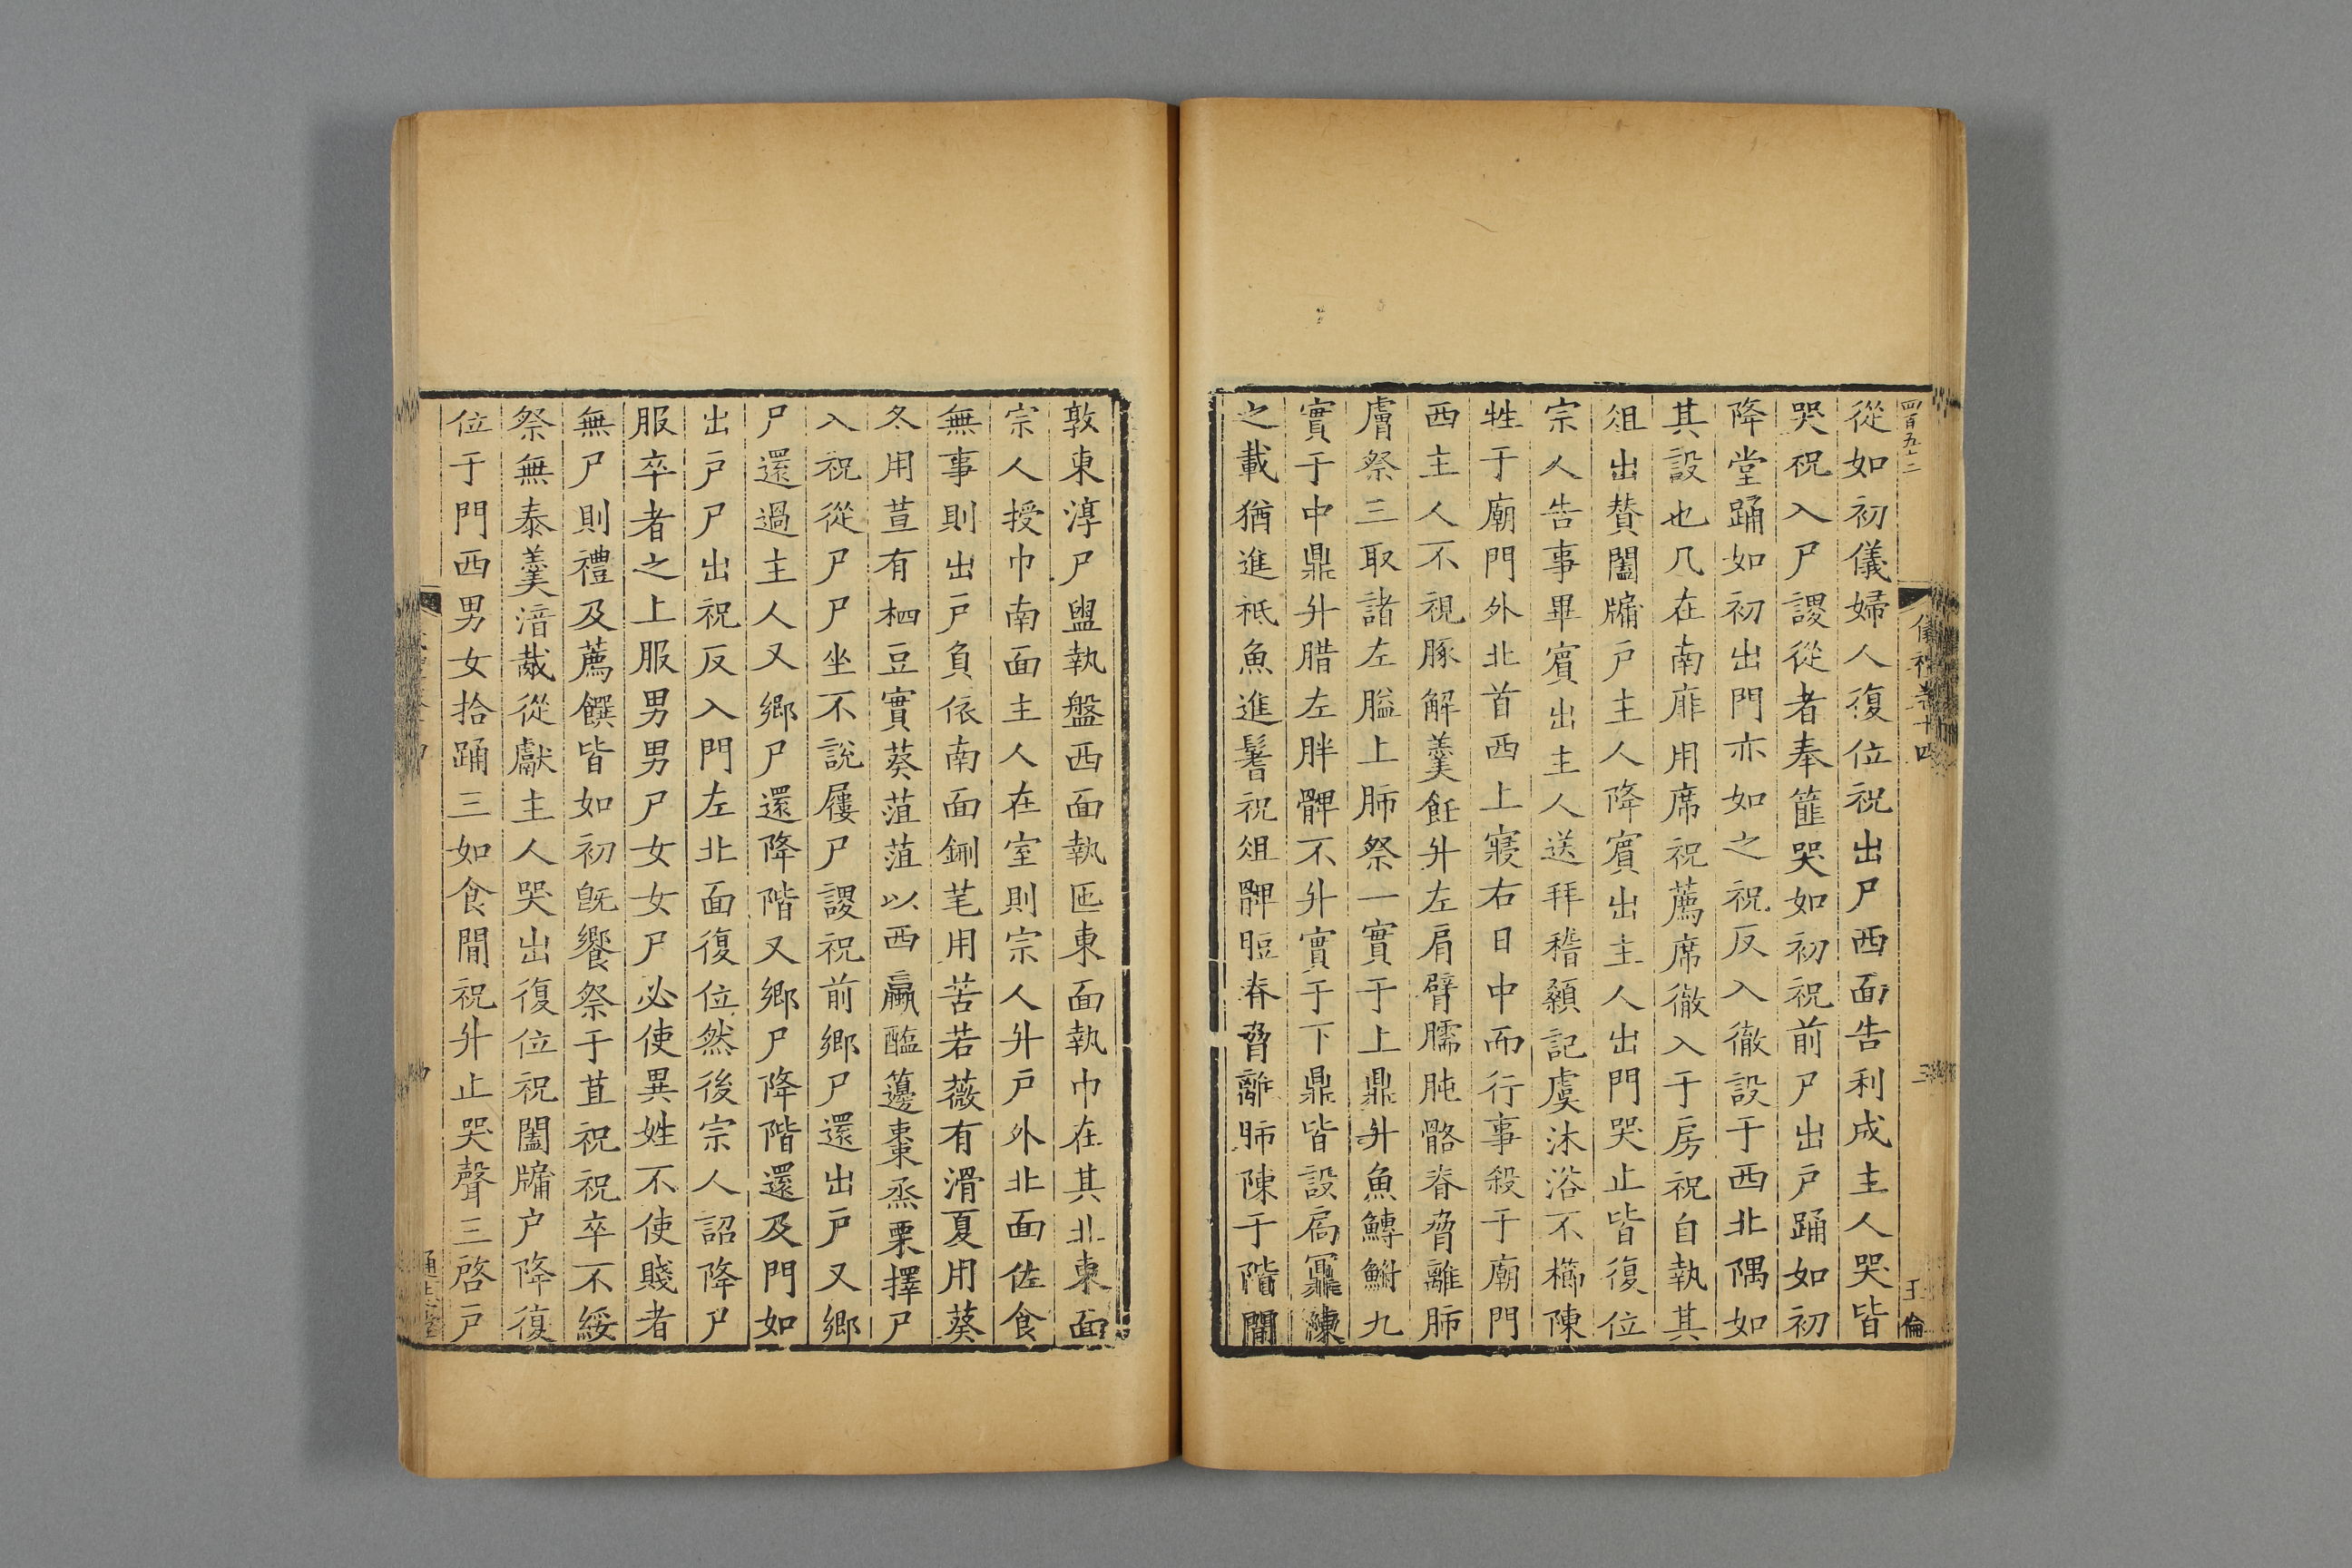 四百五十二
儀禮卷十四
三
王倫
從如初儀婦人復位祝出尸西面告利成主人哭皆
哭祝入尸謖從者奉篚哭如初祝前尸出戶踊如初
降堂踊如初出門亦如之祝反入徹設于西北隅如
其設也几在南厞用席祝薦席徹入于房祝自執其
俎出贊闔牖戶主人降賔出主人出門哭止皆復位
宗人告事畢賔出主人送拜稽顙記虞沐浴不櫛陳
牲于廟門外北首西上寢右日中而行事殺于廟門
西主人不視豚解羹飪升左肩臂臑肫骼脊脅離肺
膚祭三取諸左膉上肺祭一實于上鼎升魚鱄鮒九
實于中鼎升腊左胖髀不升實于下鼎皆設扃鼏陳
之載猶進柢魚進鬐祝俎髀脰脊脅離肺陳于階間
敦東淳尸盥執盤西面執匜東面執巾在其北東面
宗人授巾南面主人在室則宗人升戶外北面佐食
無事則出戶負依南面鉶芼用苦若薇有滑夏用葵
冬用荁有柶豆實葵菹菹以西蠃醢籩棗烝栗擇尸
入祝從尸尸坐不說屨尸謖祝前鄉尸還出戶又鄉
尸還過主人又鄉尸還降階又鄉尸降階還及門如
出戶尸出祝反入門左北面復位然後宗人詔降尸
服卒者之上服男男尸女女尸必使異姓不使賤者
無尸則禮及薦饌皆如初旣饗祭于苴祝祝卒不綏
祭無泰羹湆胾從獻主人哭出復位祝闔牖户降復
位于門西男女拾踊三如食間祝升止哭聲三啓戶